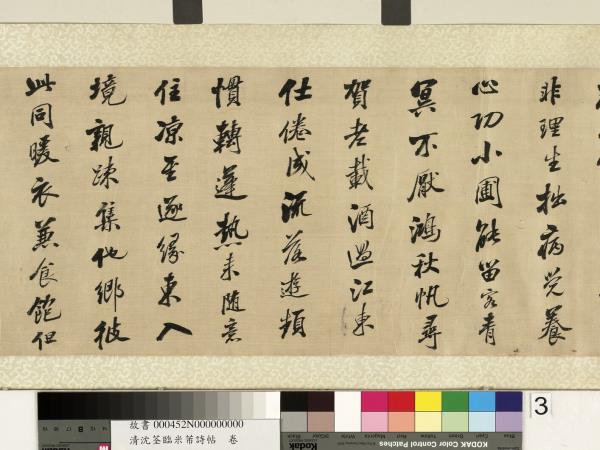 非理生拙病覺養
心功小圃能留客青
冥不厭鴻秋帆尋
賀老載酒過江東
仕倦成流落遊頻
慣轉蓬熱来随意
住凉至逐緣東入
境親疎集他鄉彼
此同暖衣兼食飽但
故書 000452N000000000
清沈荃臨米芾詩帖 卷
Kodak
KODAK Color Control Patches
3